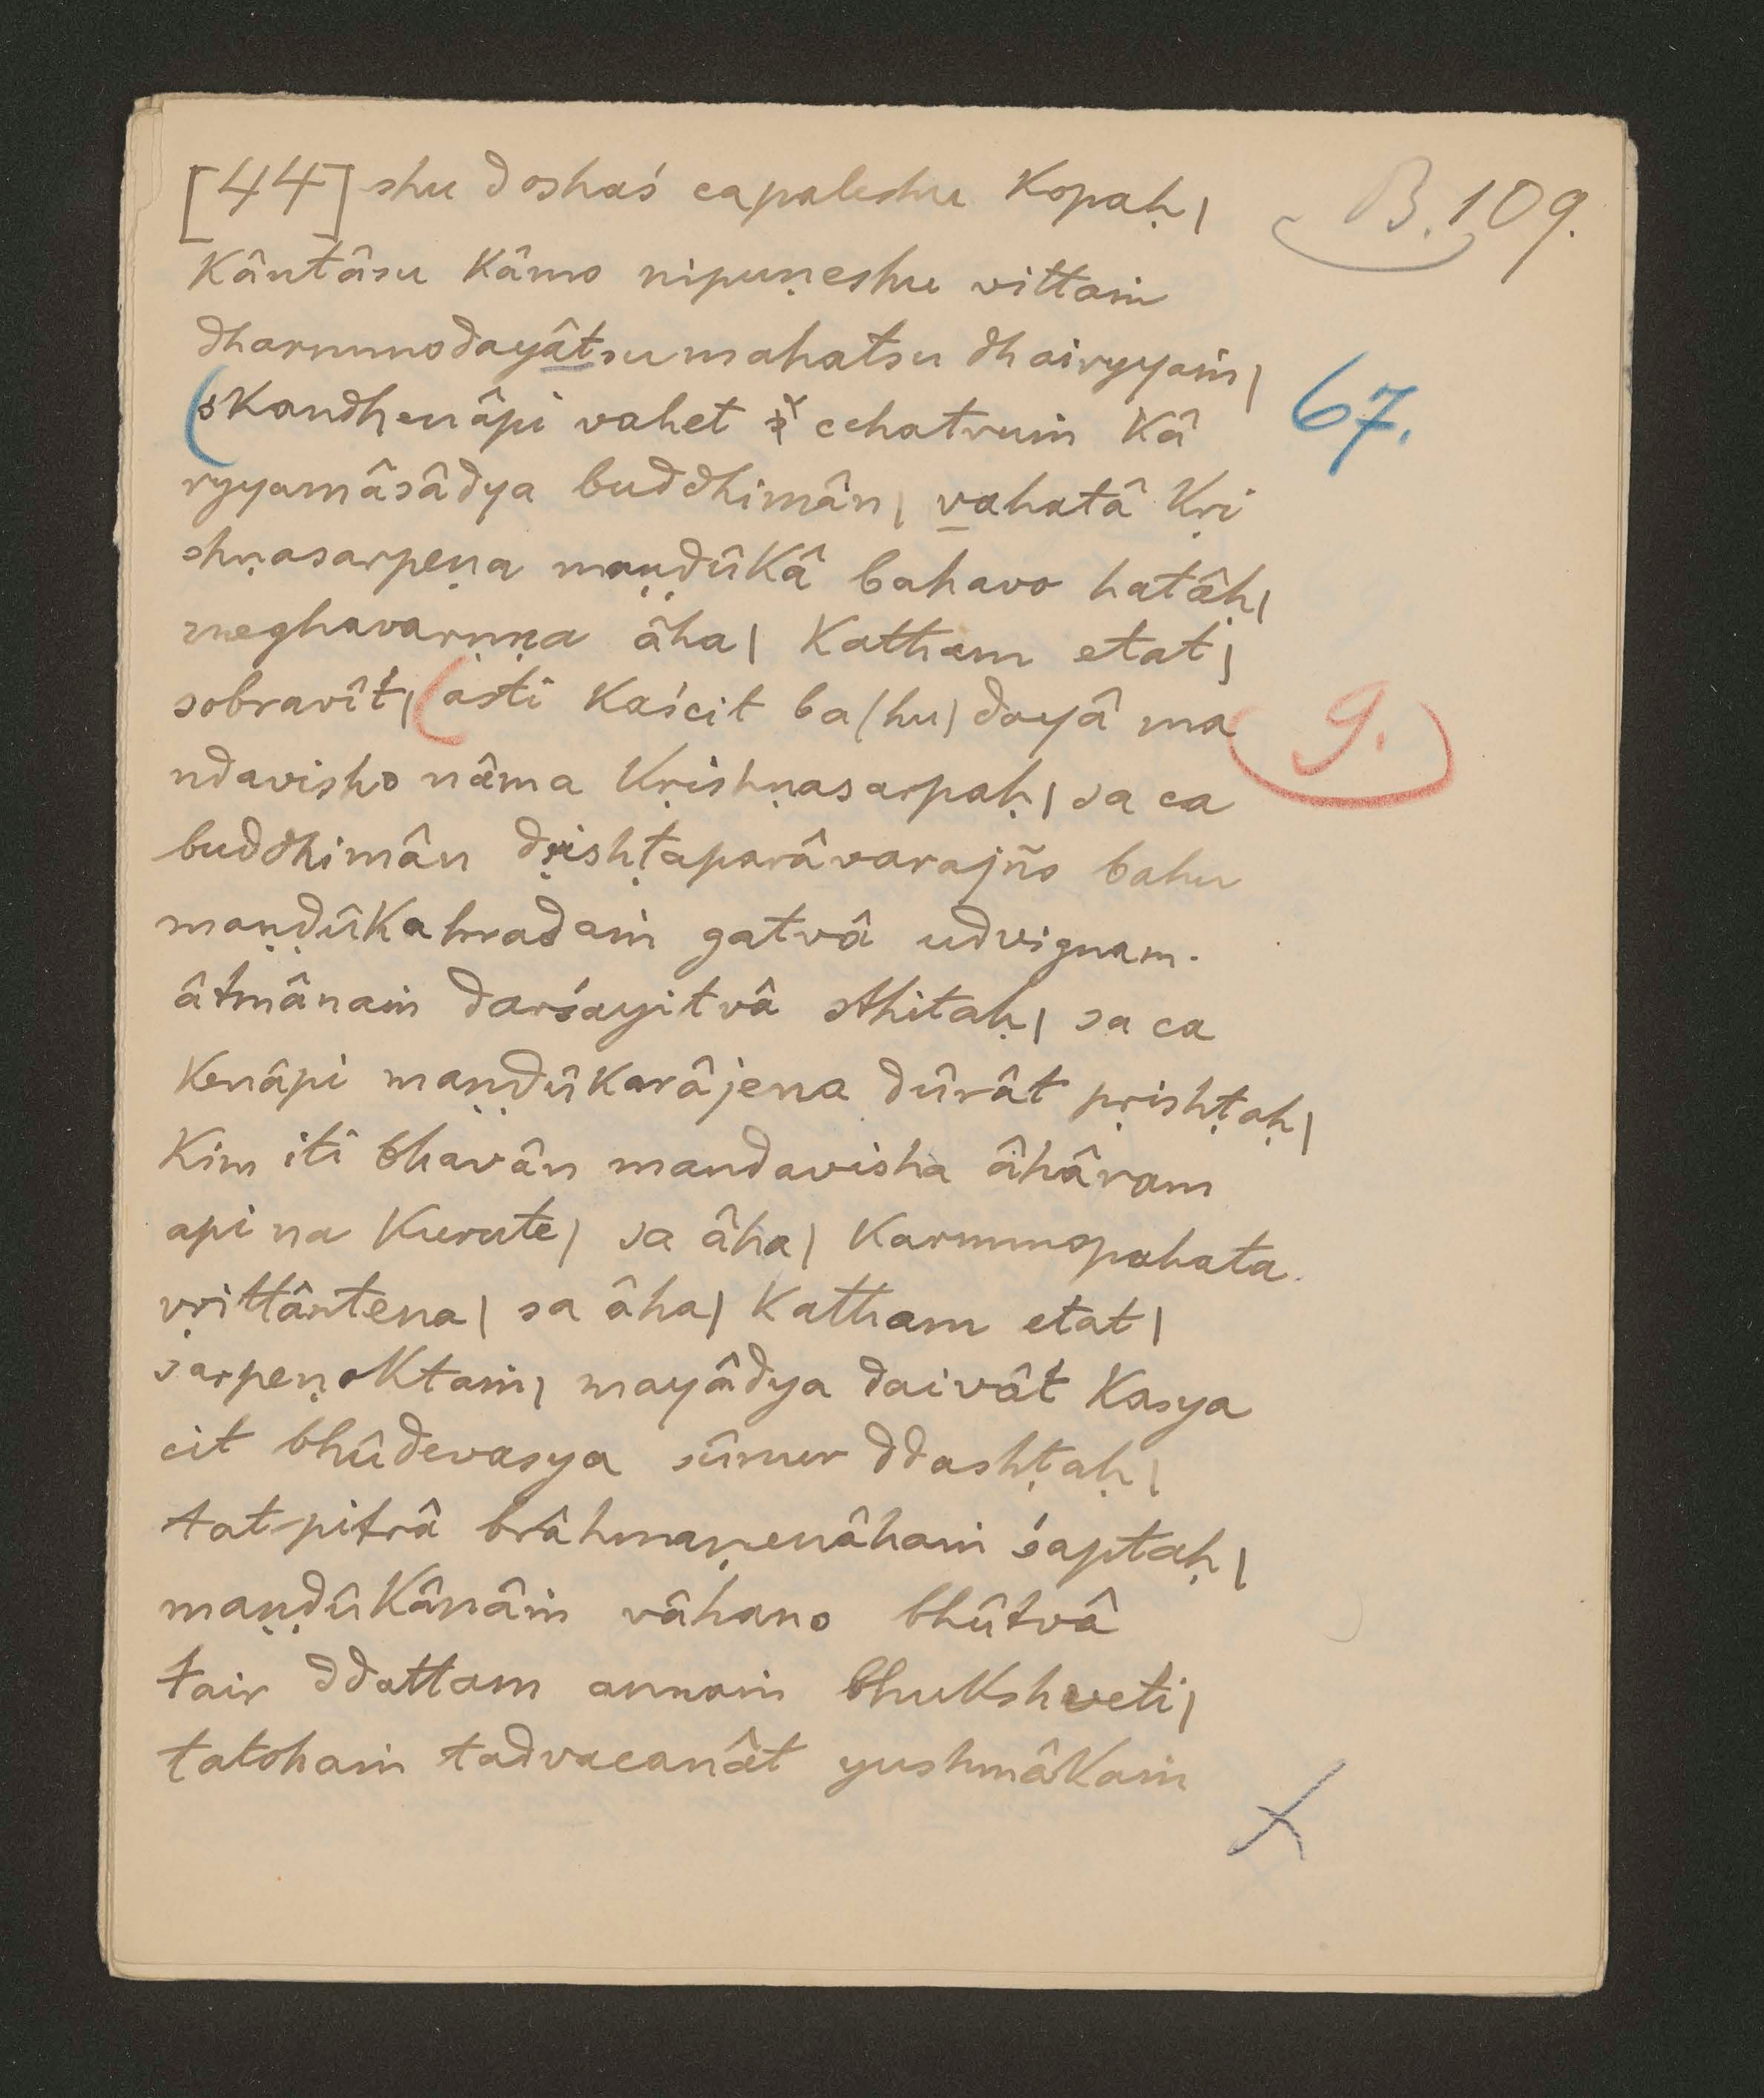 [44] shu doshaś capaleshu kopaḥ| B. 109.
kântâsu kâmo nipuṇeshu vittaṁ
dharmmodayâtsumahatsu dhairyyaṁ|
(skandhenâpi vahet cchatruṁ kâ 67.
ryyamâsâdya buddhimân| vahatâ kṛi
shṇasarpeṇa maṇḍûkâ bahavo hatâḥ|
meghavarṇṇa âha| katham etat|
sobravît| (asti kaścit ba(hu)dayâ ma 9.
ndavisho nâma kṛishṇasarpaḥ| sa ca
buddhimân dṛishṭaparâvarajño bahu
maṇḍûkahradaṁ gatvâ udvignam.
âtmânaṁ darśayitvâ sthitaḥ| sa ca
kenâpi maṇḍûkarâjena dûrât pṛishṭaḥ|
kim iti bhavân mandavisha âhâram
api na kurute| sa âha| karmmopahata.
vṛittântena| sa âha| katham etat|
sarpeṇoktaṁ| mayâdya daivât kasya
cit bhûdevasya sûnur ddashṭaḥ|
tatpitrâ brâhmaṇenâhaṁ śaptaḥ|
maṇḍûkânâṁ vâhano bhûtvâ
tair ddattam annaṁ bhukshveti|
tatohaṁ tadvacanât yushmâkaṁ